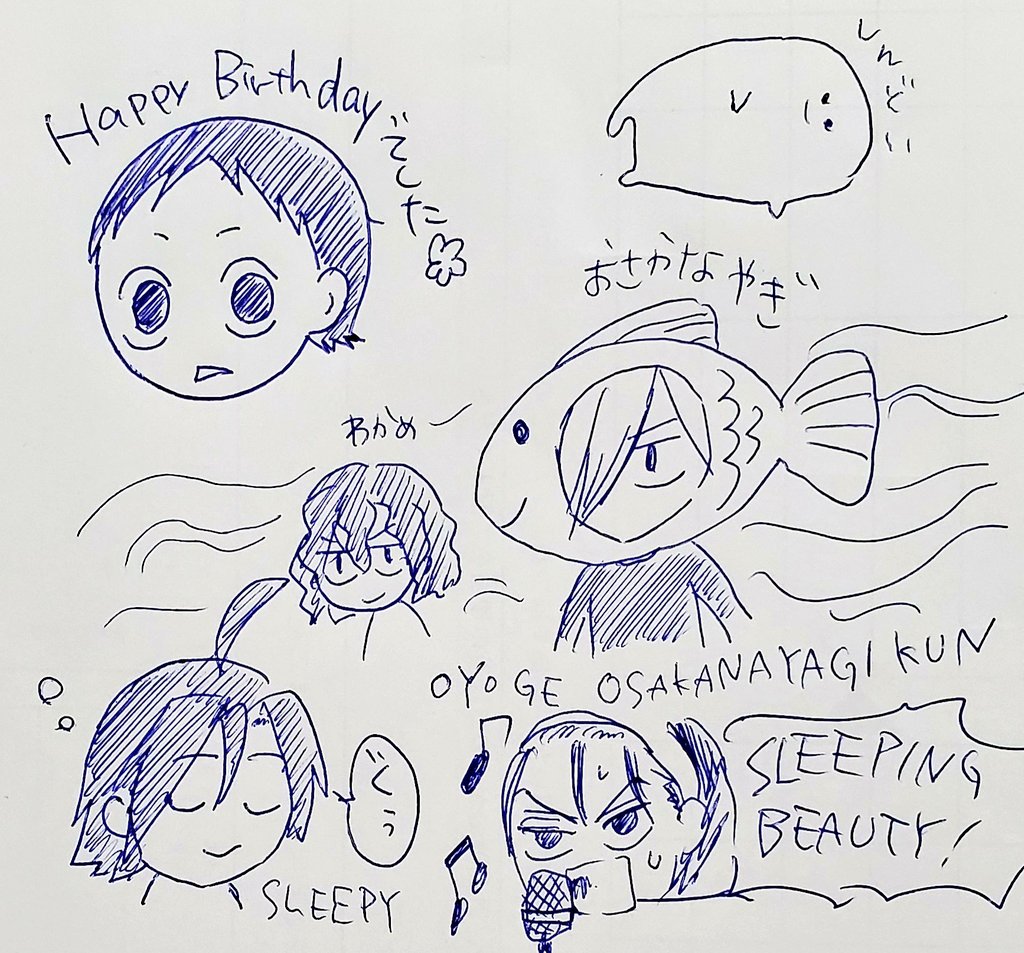 Happy Birthday でした
しんどい
おさかなやぎ
わかめー
OYOGE OSAKANAYAGI KUN
ぐぅ
SLEEPY
SLEEPING
BEAUTY!